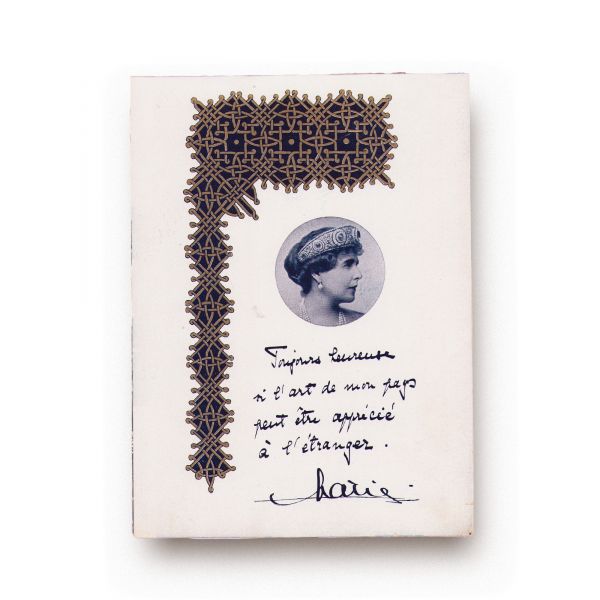 Toujours heureuse
si l'art de mon pays
peut être apprécié
à l'étranger.
Marie